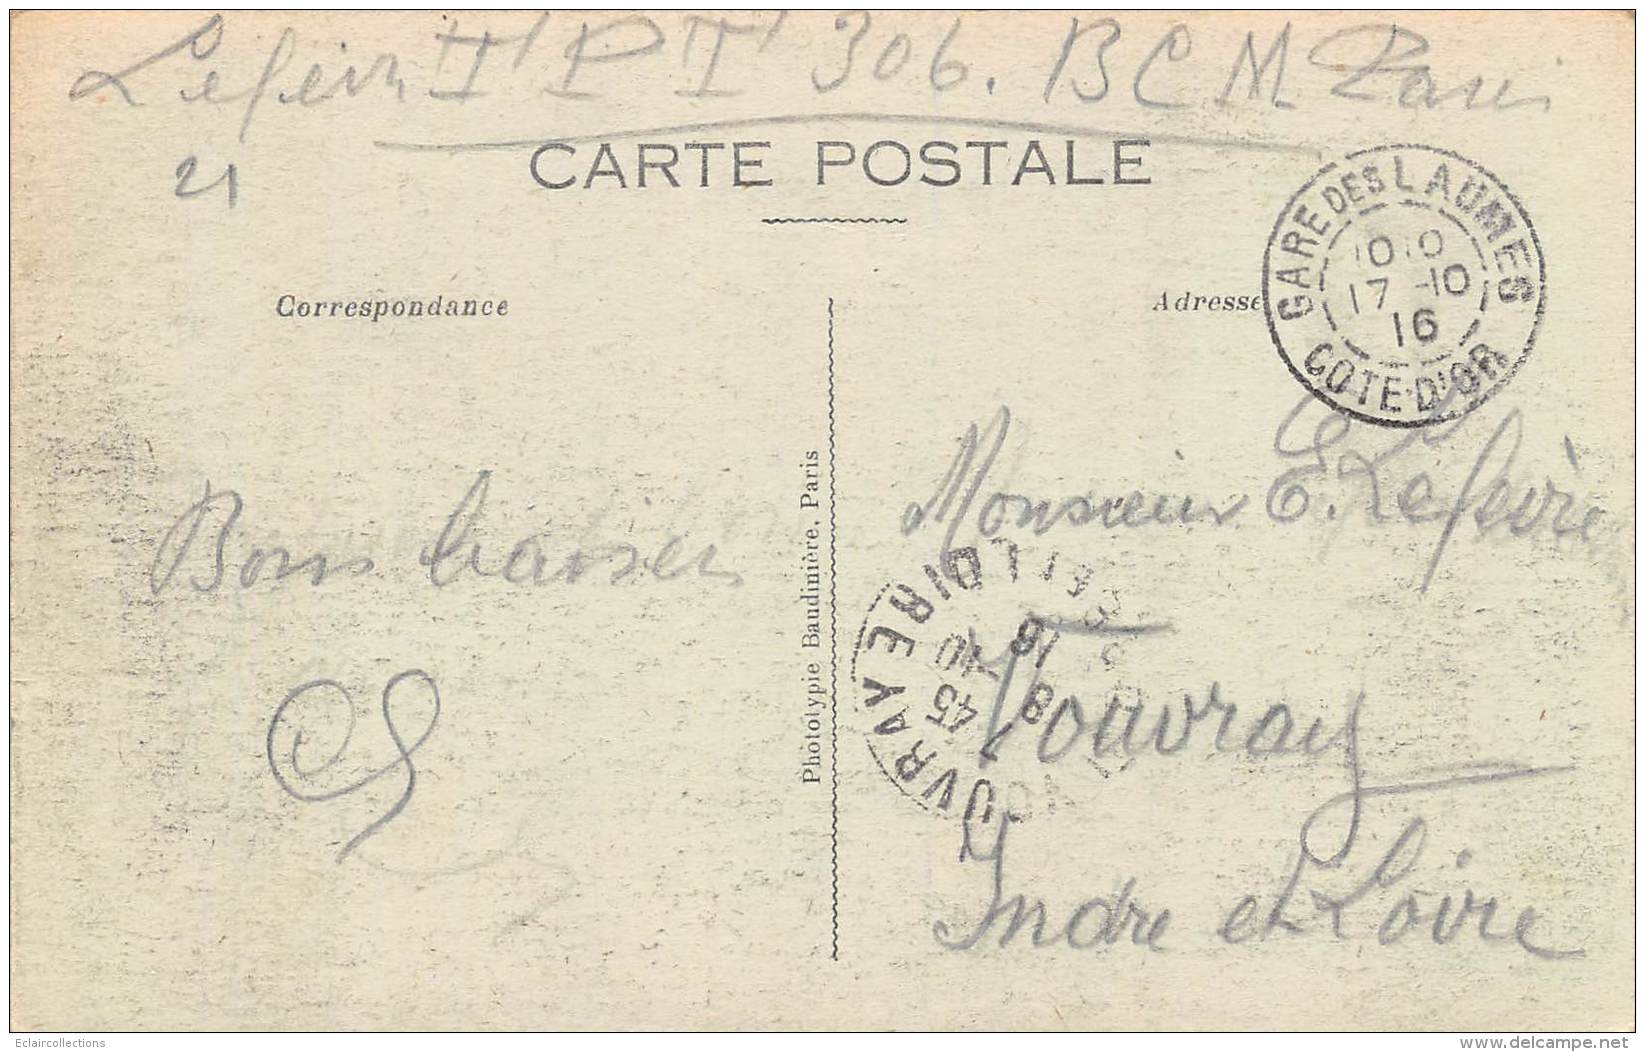 Lefèvre T P T 306. B C M Paris
21
CARTE POSTALE
Correspondance
Adresse
GARE DES LAUMES
10 10
17 -10
16
COTE D'OR
Bons baisers
Photolypie Baudinière, Paris
Monsieur E. Lefèvre
Vouvray
Indre et Loire
VOUVRAY
INDRE
45
18
10
16
Eclaircollections
www.delcampe.net